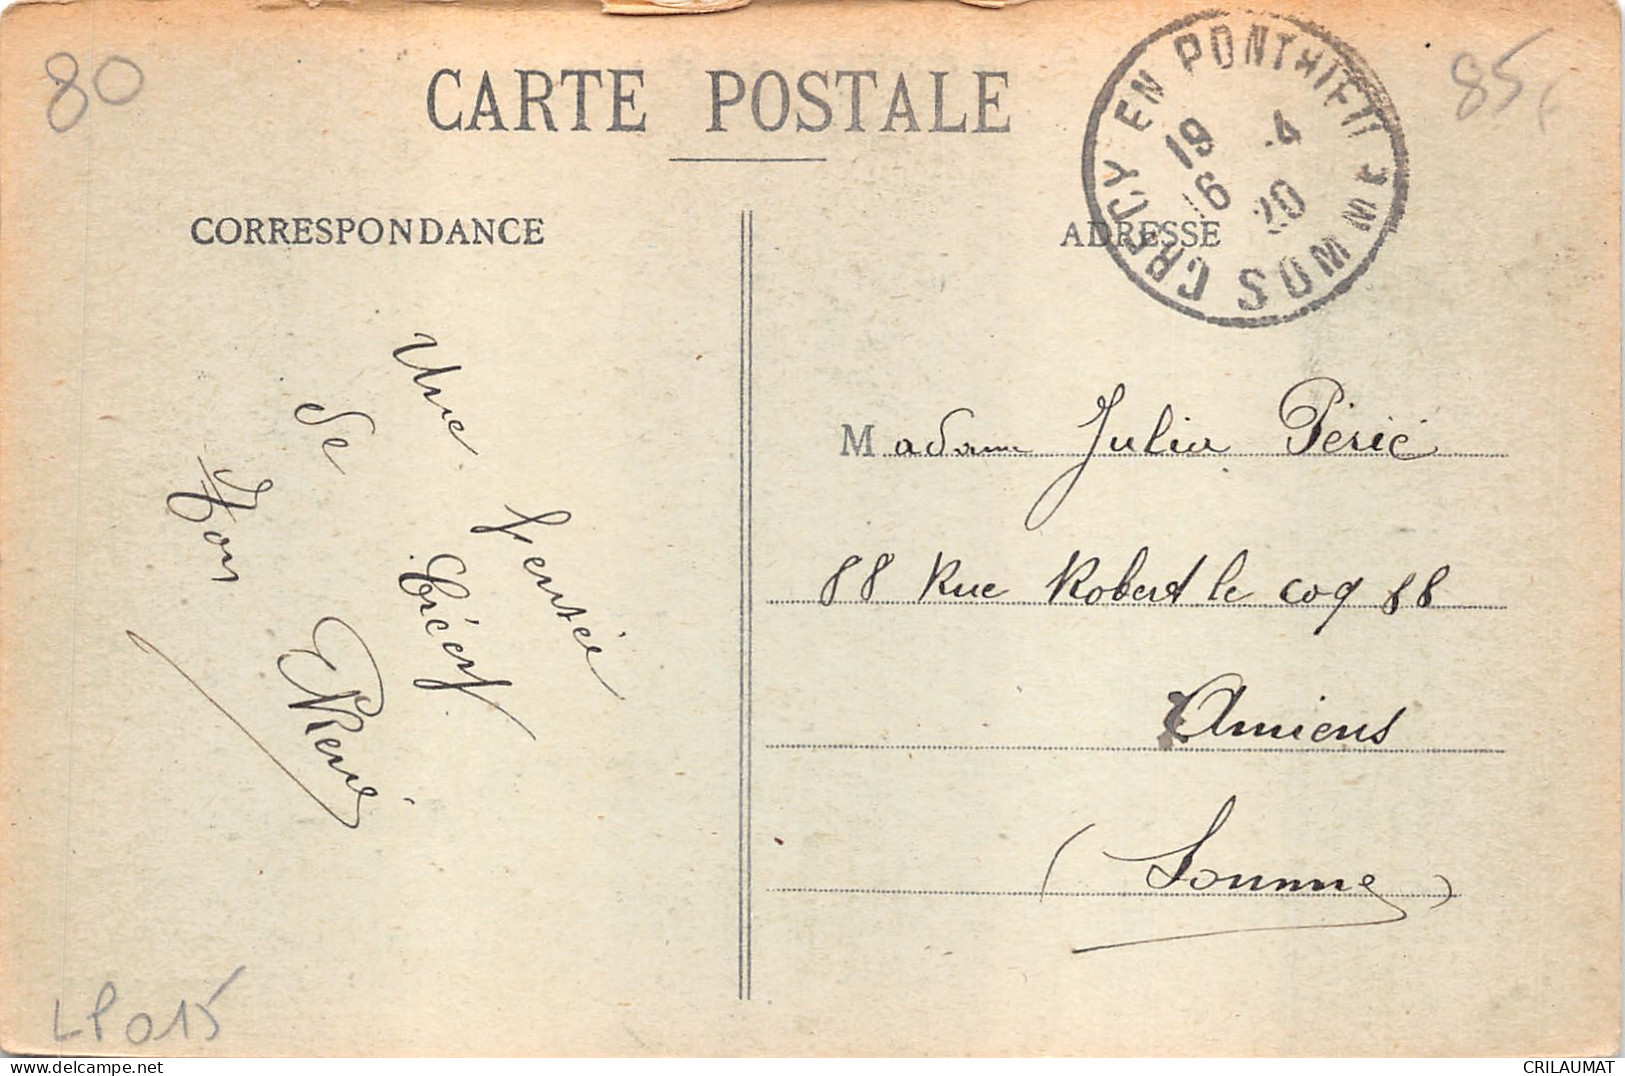 80
CARTE POSTALE
85
CRECY EN PONTHIEU
19 -4
16 20
SOMME
CORRESPONDANCE
ADRESSE
Une Pensée
de Crécy
Ton René
Madame Julia Périé
88 Rue Robert le Coq 88
Amiens
(Somme)
LP015
CRILAUMAT